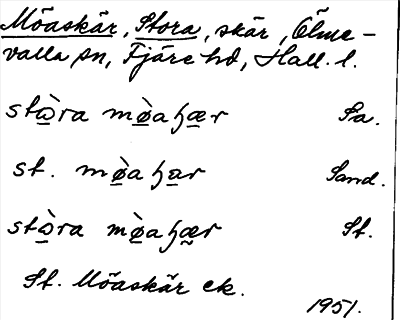 Möaskär, Stora, skär, Ölme-
valla sn, Fjäre hd, Hall. l.
stὼ̲ra mø̲̀aɧæ̲r Sa.
st. mø̲̀aɧa̲r Sand.
stὼ̲ra mø̲̀aɧæ̲r St.
St. Möaskär ek.
1951.